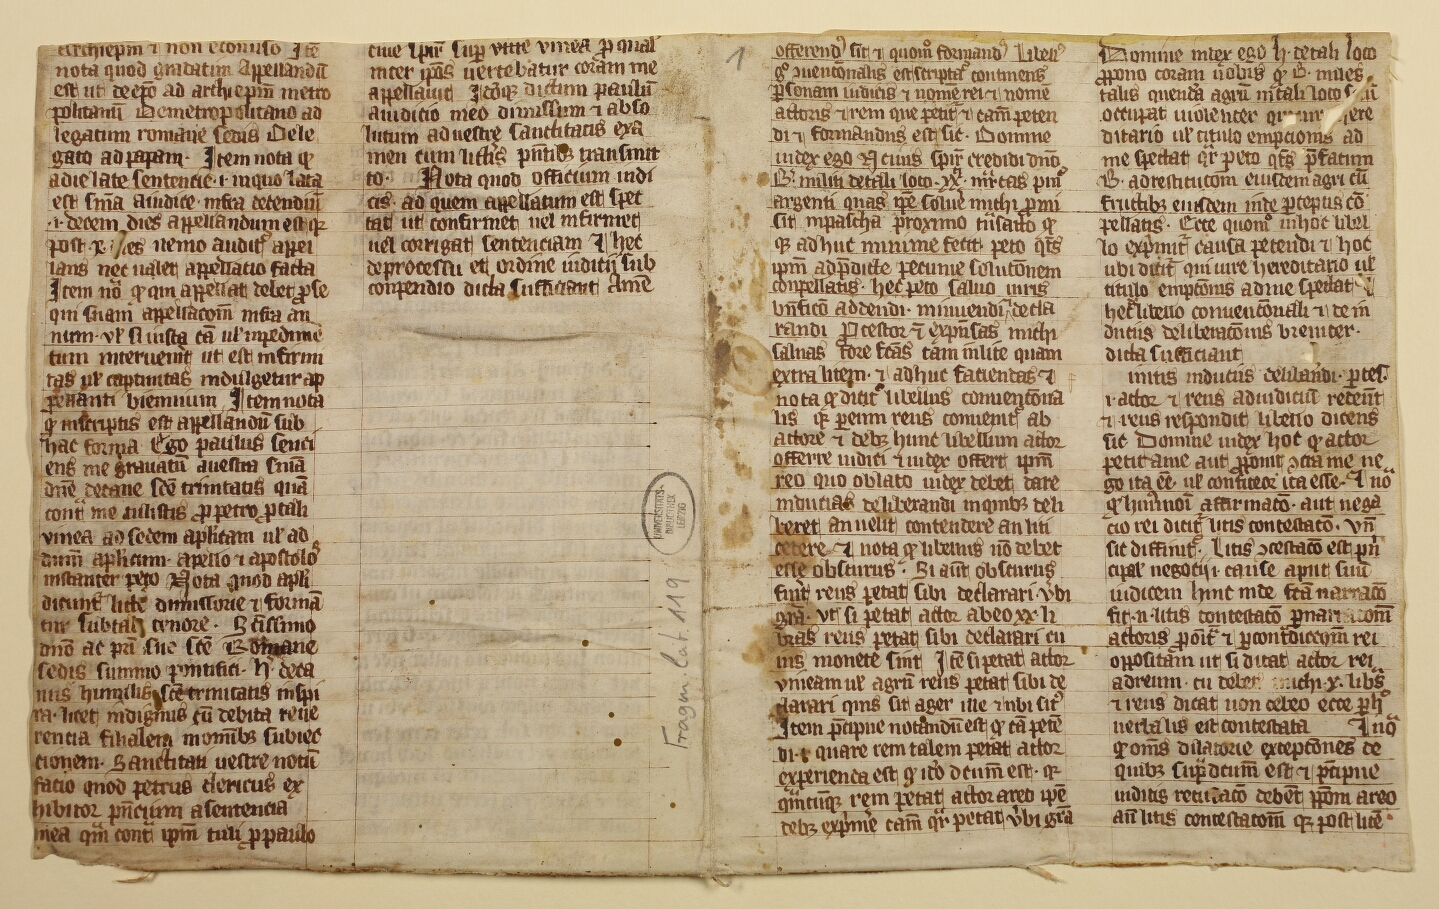 archiepm ⁊ non econuso Itē
nota quod gradatim appellandū
est ut de epo ad archiepm metro
politanū De metropolitano ad
legatum romane sedis Dele
gato ad papam. Item nota ꝙ
a die late sentencie .i. in quo lata
est sn̄ia a iudice infra decendiū
.i. decem dies appellandum est qꝛ
post .x. dies nemo auditur appel
lans nec ualet appellatio facta
Item nō ꝙ qui appellat debet ꝓse
qui suam appellacōm infra an
num. ul si iusta cā ul impedime
tum interuenit ut est infirmi
tas ul captiuitas indulgetur ap
pellanti biennium Item nota
ꝙ in scriptis est appellandū sub
hac forma Ego paulus senci
ens me grauatū a uestra sniā
dn̄e decane scē trinitatis quā
cont me tulistis ꝓ petro ꝓ tali
vinea ad sedem aplicam ul ad
dnm̄ aplicum. apello ⁊ apostolos
instanter peto Nota quod apli
dicunt᷑ litte dimissorie ⁊ formā
tur sub tali tenore. Sc̄issimo
dnō ac pat suo scē Romane
sedis summo pontifici. H. deca
nus humilis scē trinitatis inspi
ra. licet indignus cū debita reue
rencia filialem in omnibꝫ subiec
cionem. Sanctitati uestre notū
facio quod petrus clericus ex
hibitor pn̄cium a sentencia
mea qm̄ cont ipm̄ tuli ꝓ paulo
ciue sup vitte vinea ꝓ qua
inter ipōs uertebatur coram me
appellauit Itaqꝫ dictum paulū
a iudicio meo dimissum ⁊ abso
lutum ad uestre sanctitatis exa
men cum litt̄is pn̄tibꝫ transmit
to. Nota quod officium iudi
cis ad quem appellatum est spec
tat ut confirmet uel infirmet
uel corrigat sentenciam Et hec
de processu et ordine iudicij sub
conpendio dicta sufficiant Amē
1
UNIVERSITÄTS-
BIBLIOTHEK
LEIPZIG
Fragm. lat. 119
offerendꝰ sit ⁊ quom̄ formandꝰ Libellꝰ
gͦ ꝯuencōnalis est scripta continens
ꝑsonam iudicis ⁊ nomē rei ⁊ nomē
actoris ⁊ rem que petit᷑ ⁊ cam̄ peten
di ⁊ formandus est sic. Domine
iudex ego N ciuis credidi dnō
B. militi de tali loco .xx. mrcas
argenti quas ipē solue michi ꝓmi
sit in pascha proximo tn̄sacto ꝙ
qꝛ ad huc minime fecit. peto
ipm̄ ad p̄dicte pecunie solutōnem
conpellatis. hec peto saluo iuris
bn̄ficio addendi. minuendi decla
randi Protestor ⁊ expn̄sas michi
saluas fore tam in lite quam
extra litem. ⁊ ad huc faciendas ⁊
nota ꝙ dicit᷑ libellus conuencōna
lis qꝛ per eum reus conuenit᷑ ab
actore ⁊ debꝫ hunc libellum actor
offerre iudici ⁊ iudex offert ipm̄
reo quo oblato iudex debet dare
inducias deliberandi in quibꝫ deli
beret an uelit contendere an liti
cedere. Et nota ꝙ libellus nō debet
esse obscurus. Si aūt obscurus
fuit reus petat sibi declarari vbi
gr̄a. vt si petat actor ab eo xx li
bras reus petat sibi declarari cu
ius monete sint Itē si petat actor
vineam ul agrū reus petat sibi de
clarari quis sit ager ille ⁊ ubi sit
Item p̄cipue notandū est ꝙ cā petē
di .i. quare rem talem petat actor
experienda est ꝙ ico dcum est. qꝛ
qn̄cūqꝫ rem petat actor a reo ipē
debꝫ expime cam̄ qr petat vbi grā
Domine iudex ego H. de tali loco
ꝓpono coram uobis ꝙ B. miles
talis quenda agrū in tali loco situ
occupat uiolenter qui iure here
ditario ul titulo empcionis ad
me spectat qr̄ peto p̄fatum
B. ad restitucōm eiusdem agri cū
fructibꝫ eiusdem inde ꝑceptis cō
pellatis. Ecce quom̄ in hoc libel
lo expmit᷑ causa petendi ⁊ hoc
ubi dicit᷑ qui iure hereditario ul
titulo emptōnis ad me spectat
hec libello conuencōnali ⁊ de in
duciis deliberacōnis breuiter.
dicta sufficiant
initis induciis delibandi. ptes
.i. actor ⁊ reus ad iudiciū redeūt
⁊ reus respondit libello dicens
sic Domine iudex hoc ꝙ actor
petit a me aut ꝓponit ꝯtra me ne
go ita eē. ul confiteor ita esse. Et nō
ꝙ hui9modi affirmatō. aut nega
cio rei dicit᷑ litis contestacō. vn̄
sic diffinit᷑. Litis ꝯtestacō est pn̄
cipal negocij .i. cause apud suū
iudicem hinc inde fcā narracō
fit .n. litis contestacō ꝑ narracōm
actoris ꝓoit᷑ ⁊ ꝑ contdicocm̄ rei
oppositam ut si dicat actor rei
ad reum. tu debes michi .x. libs
⁊ reus dicat non debeo ecce ꝑ h
uerba lis est contestata Et nō
ꝙ oms dilatorie excepcōnes de
quibꝫ sup dcum est ⁊ p̄cipue
iudicis recusacō debēt ꝓpōni a reo
añ litis contestacōm qꝛ post lite